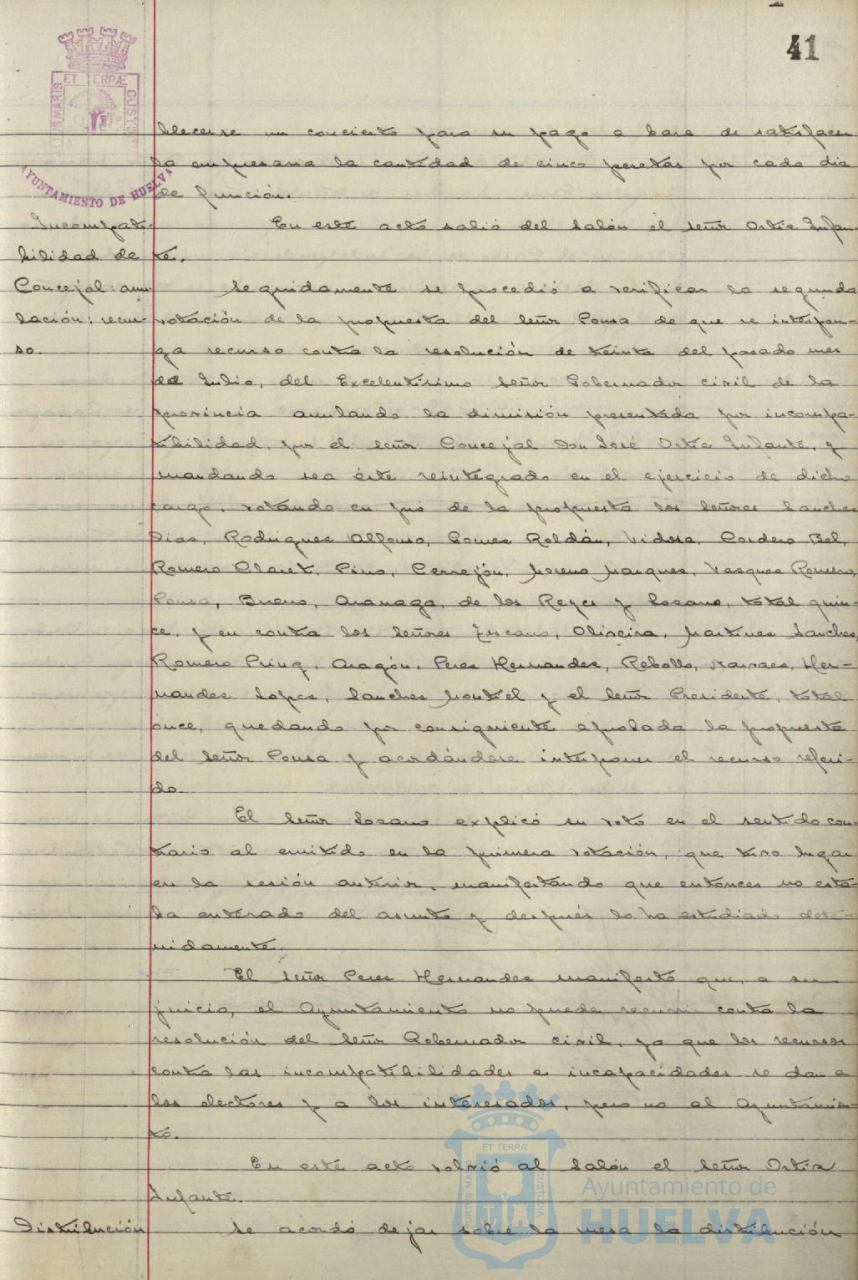 41
PORTUS MARIS ET TERRÆ CUSTODIA
AYUNTAMIENTO DE HUELVA
blecerse un concierto para su pago a base de satisfacer
la empresaria la cantidad de cinco pesetas por cada dia
de función.
Incompati-
bilidad de
Concejal: anu-
lación: recur-
so.
En este acto salió del salón el señor Ortiz Infan-
te.
Seguidamente se procedió a verificar la segunda
votación de la propuesta del señor Ponsa de que se interpon-
ga recurso contra la resolución de treinta del pasado mes
de Julio, del Excelentísimo señor Gobernador civil de la
provincia anulando la dimisión presentada por incompa-
tibilidad, por el señor Concejal Don José Ortiz Infante, y
mandando sea éste reintegrado en el ejercicio de dicho
cargo, votando en pró de la propuesta los señores Sanchez
Diaz, Rodriguez Alfonso, Gomez Roldán, Vidosa, Cordero Bel,
Romero Claret, Pino, Cerrejón, Moreno Marquez, Vazquez Romero,
Ponsa, Bueno, Aranaga, de los Reyes y Lozano, total quin-
ce, y en contra los señores Oliveira, Martinez Sanchez,
Romero Aragón, Perez Hernandez, Rebollo, Narvaez, Her-
nandez Lopez, Sanchez Montiel y el señor Presidente, total
once, quedando por consiguiente aprobada la propuesta
del señor Ponsa y acordándose interponer el recurso referi-
do.
El señor Lozano explicó su voto en el sentido con-
trario al emitido en la primera votación, que tuvo lugar
en la sesión anterior, manifestando que entonces no esta-
ba enterado del asunto y después lo ha estudiado dete-
nidamente.
El señor Perez Hernandez manifestó que, a su
juicio, el Ayuntamiento no puede recurrir contra la
resolución del señor Gobernador civil, ya que los recursos
contra las incompatibilidades e incapacidades se dan a
los electores y a los interesados, pero no al Ayuntamien-
to.
En este acto volvió al salón el señor Ortiz
Infante.
Distribución
se acordó dejar sobre la mesa la distribución
PORTUS MARIS ET TERRÆ CUSTODIA
Ayuntamiento de
HUELVA